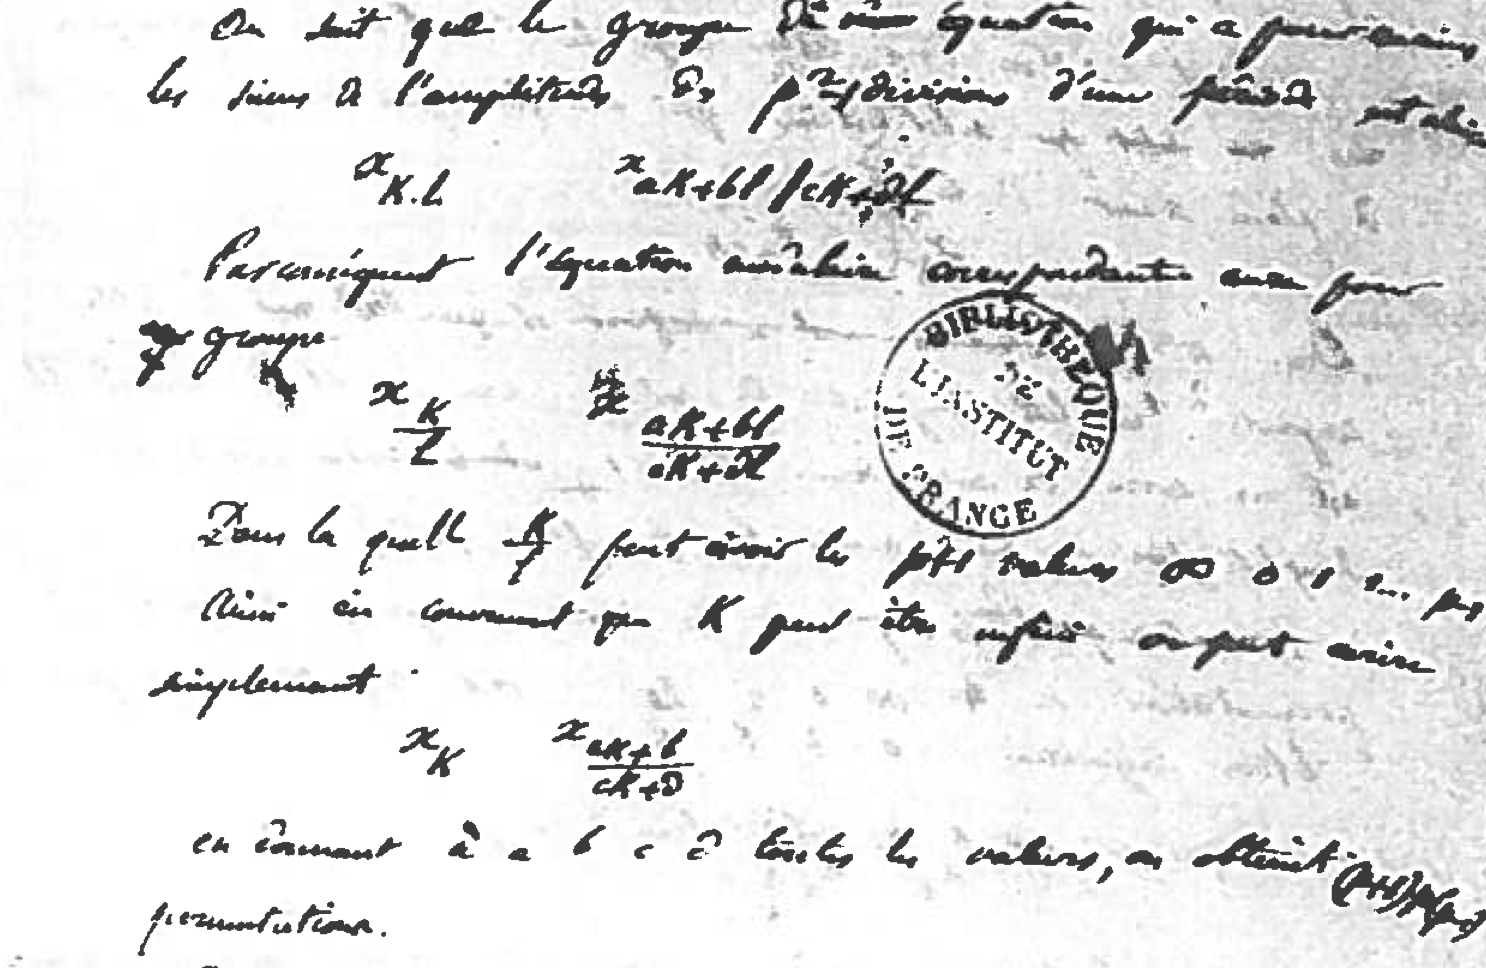 On sait que le groupe de équation qui a pour racines
les sinus de l'amplitude des p²-1 divisions d'une période est
x K.l x ak+bl, ck+dl
Par conséquent l'équation modulaire correspondante aura pour
groupe
x K/l x ak+bl/ck+dl
Dans la quelle K/l peut avoir les p+1 valeurs ∞ 0 1 2... p-1
Ainsi en convenant que K peut être infini on peut écrire
simplement
x K x ak+b/ck+d
en donnant à a b c d toutes les valeurs, on obtient (p+1)p(p-1)
permutations.
BIBLIOTHEQUE
DE
L'INSTITUT
DE FRANCE